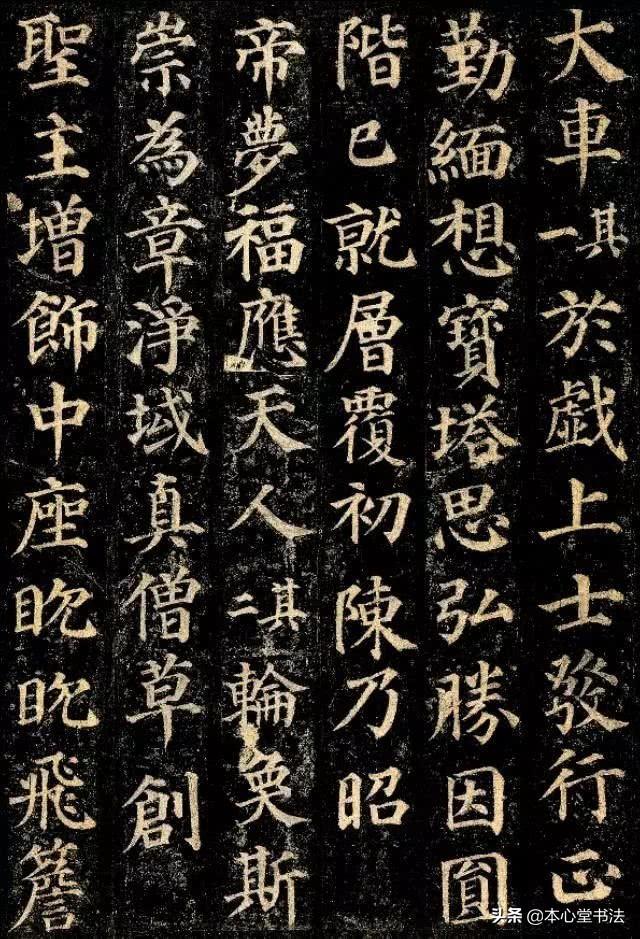 大車其一於戯上士發行正
勤緬想寶塔思弘勝因圓
階已就層覆初陳乃昭
帝夢福應天人其二輪奐斯
崇為章淨域真僧草創
聖主增飾中座眈眈飛簷
头条 @本心堂书法